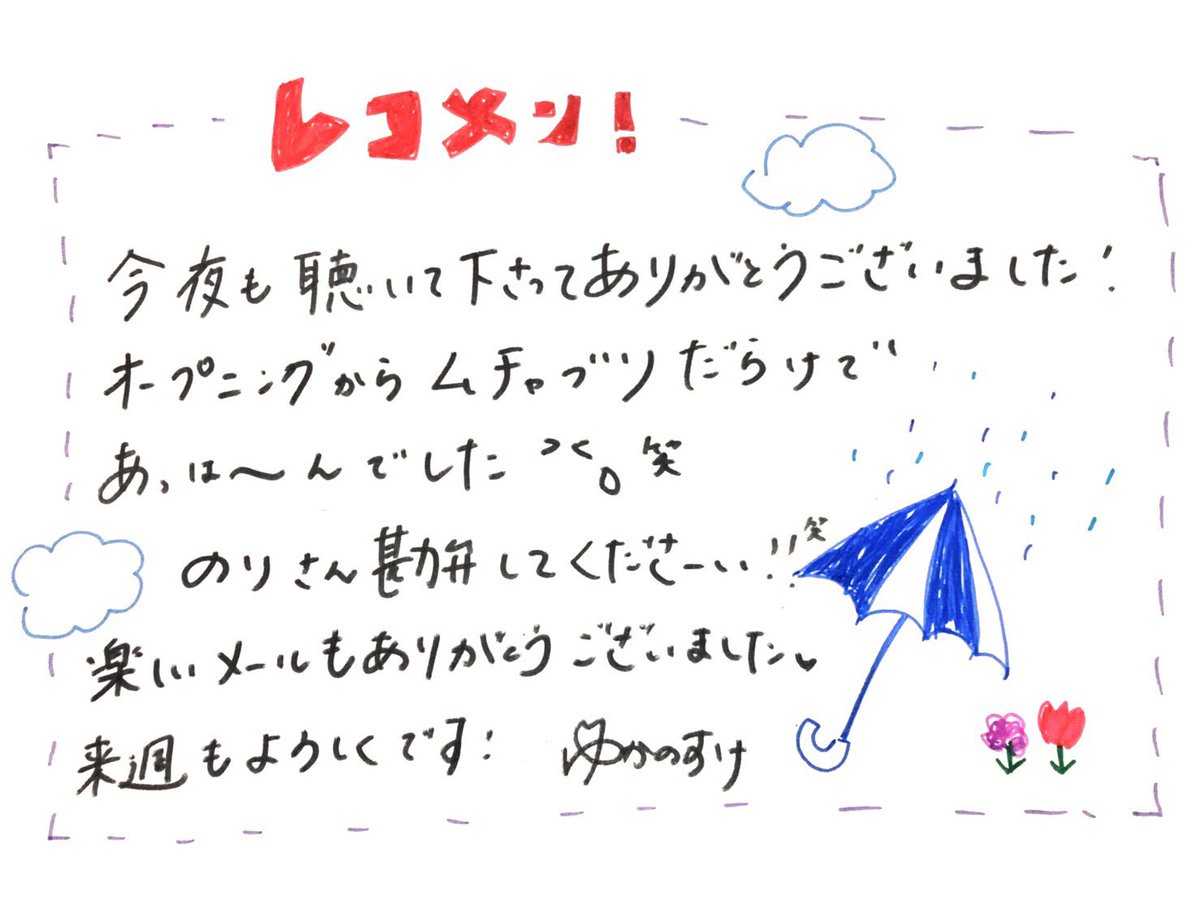 レコメン!
今夜も聴いて下さってありがとうございました!
オープニングからムチャブリだらけで
あっは〜んでした 笑
のりさん勘弁してくださーい!! 笑
楽しいメールもありがとうございました♥
来週もよろしくです! ゆかのすけ